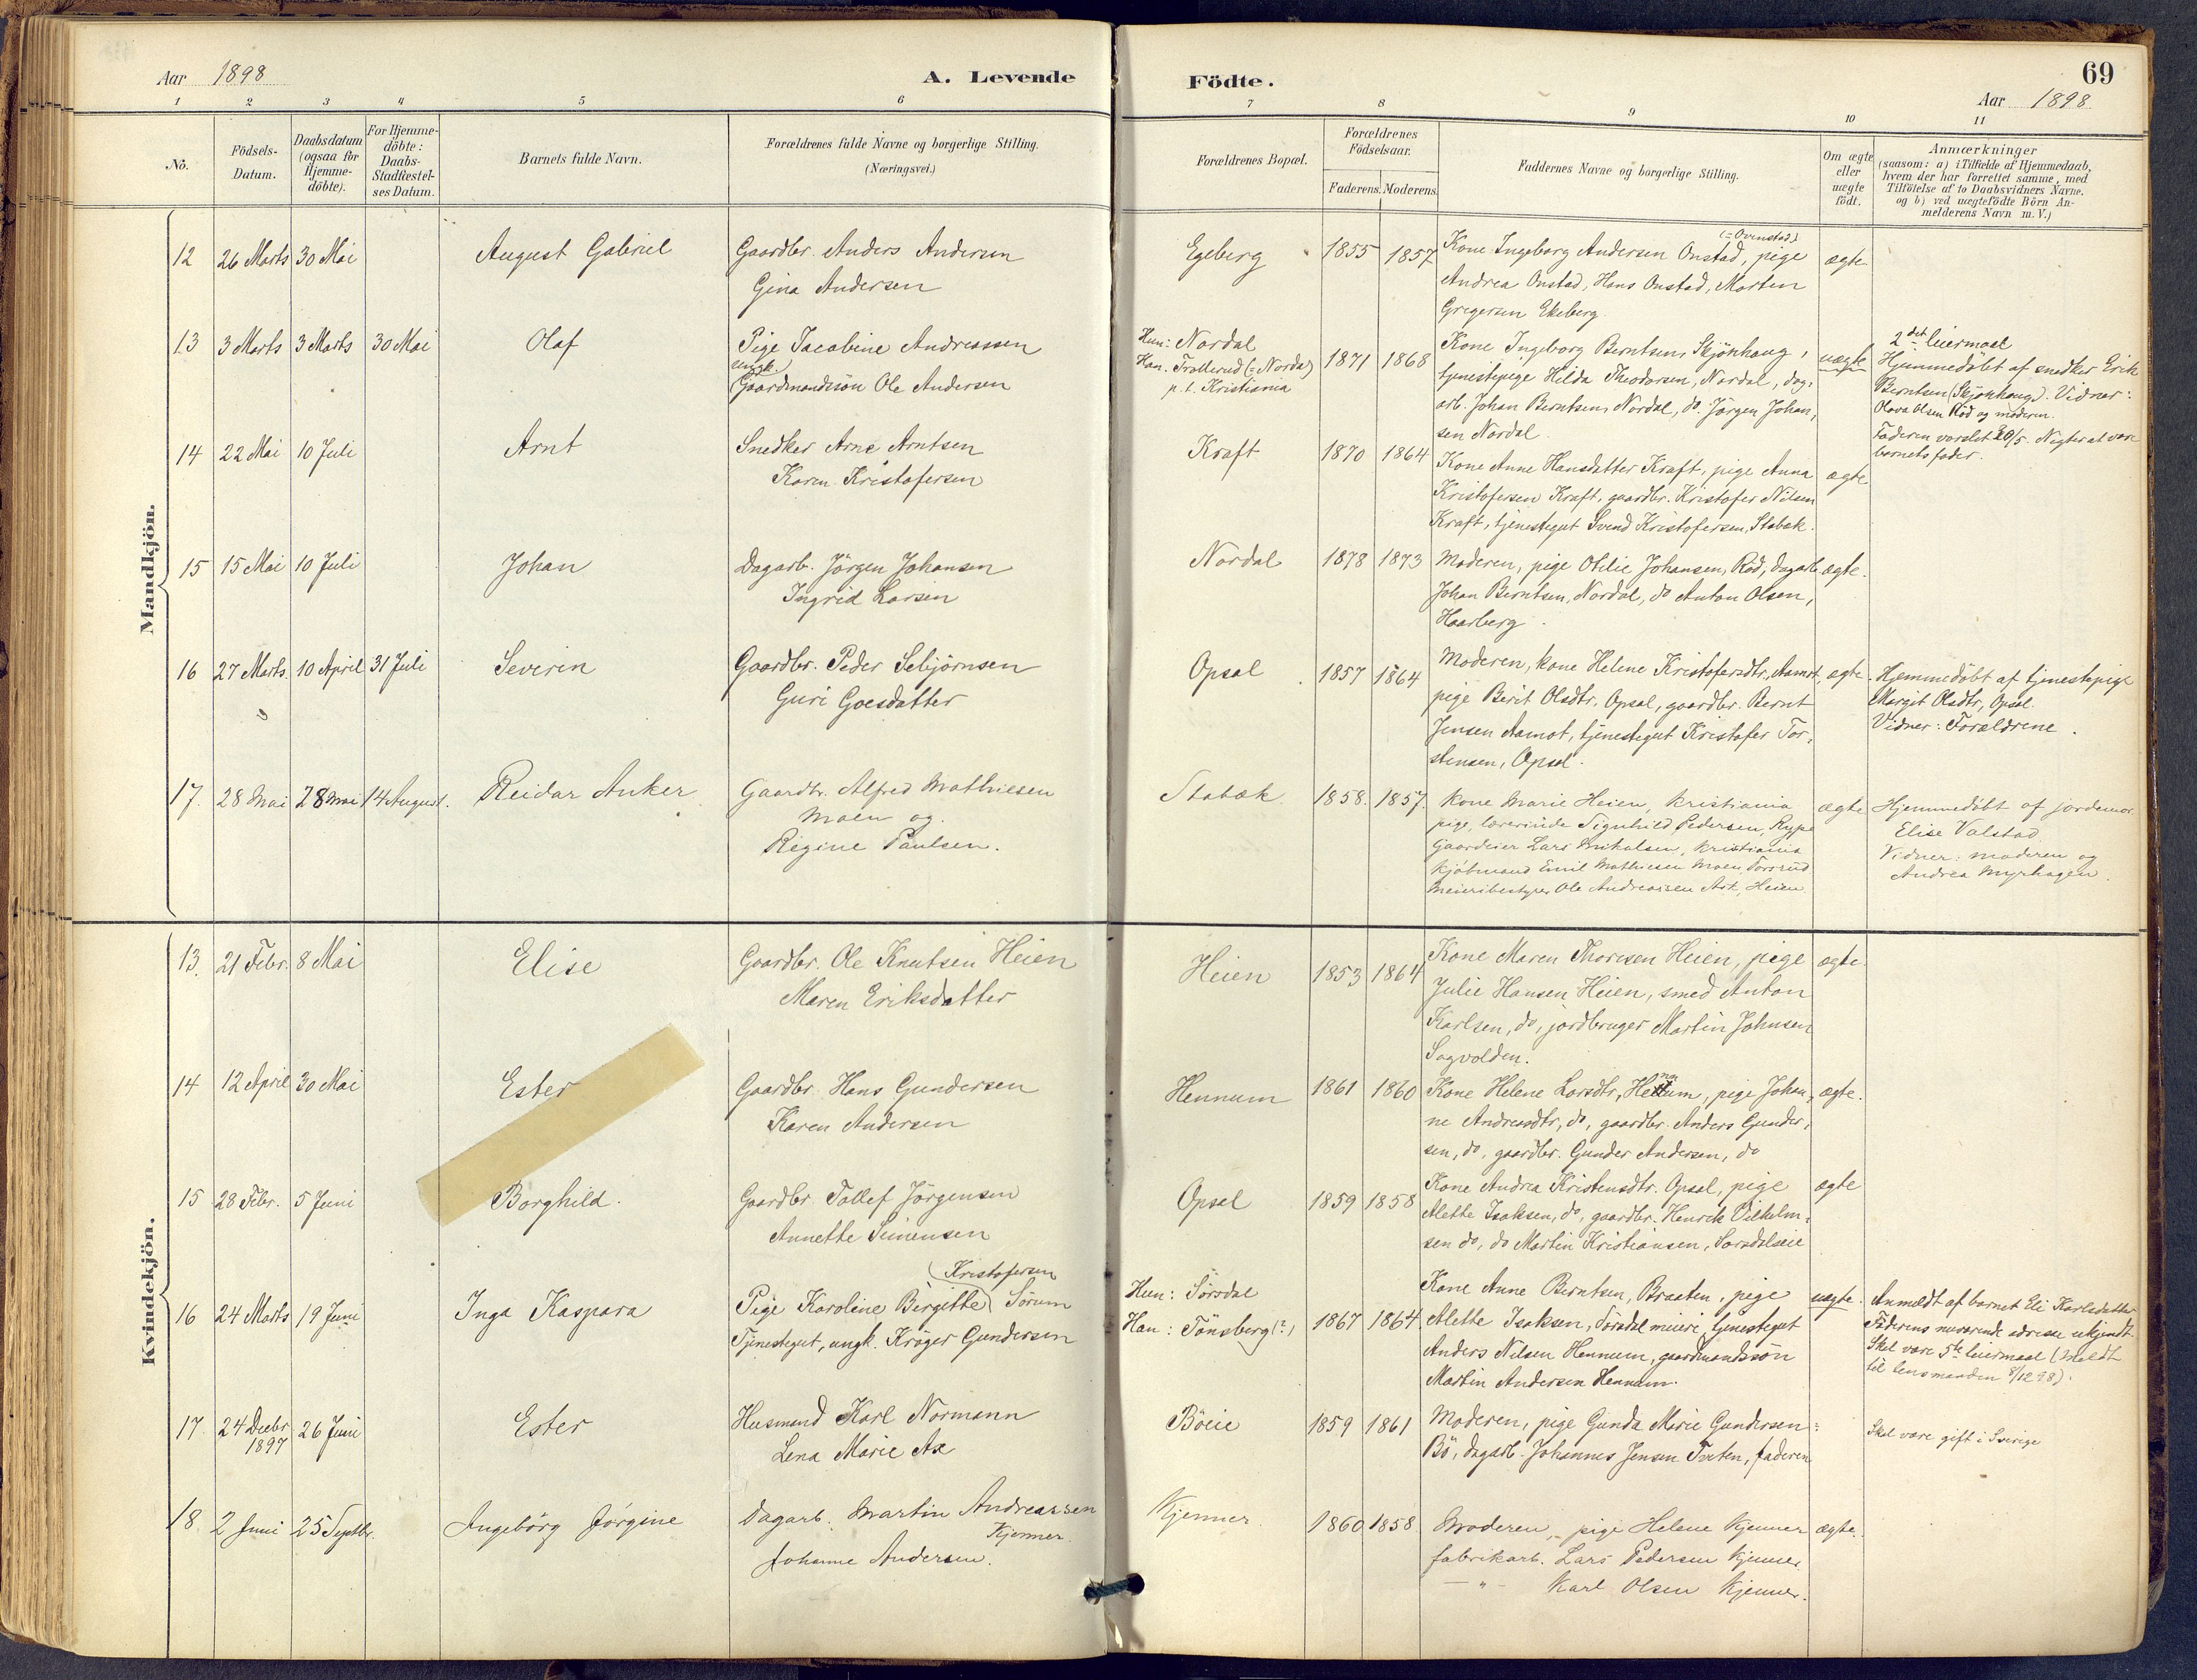 Aar 1898
A. Levende
Födte.
69
Aar 1898
1 2 3 4 5 6 7 8 9 10 11
No.
Födsels-Datum.
Daabsdatum (ogsaa for Hjemme-döbte).
For Hjemme-döbte: Daabs-Stadfæstel-ses Datum.
Barnets fulde Navn.
Forældrenes fulde Navne og borgerlige Stilling.
(Næringsvei.)
Forældrenes Bopæl.
Forældrenes Födselsaar.
Faderens. Moderens.
Faddernes Navne og borgerlige Stilling.
Om ægte eller uægte födt.
Anmærkninger
(saasom: a) i Tilfælde af Hjemmedaab,
hvem der har forrettet samme, med
Tilföielse af to Daabsvidners Navne.
og b) ved uægtefödte Börn An-
melderens Navn m. V.)
Mandkjön.
12 26 Marts 30 Mai
August Gabriel
Gaardbr. Anders Andersen
Gina Andersen
Egeberg
1855 1857
(= Ovenstad)
Kone Ingeborg Andersen Onstad, pige
Andrea Onstad, Hans Onstad, Morten
Gregersen Ekeberg.
ægte
13 3 Marts 3 Marts 30 Mai
Olaf
Pige Jacobine Andreassen
ungk.
Gaardmandssön Ole Andersen
Hun: Nordal
Han: Trollerud (= Nordal)
p. t. Kristiania
1871 1868
Kone Ingeborg Berntsen, Skjönhaug,
tjenestepige Hilda Theodorsen, Nordal, dag,
arb. Johan Berntsen, Nordal, do. Jörgen Johan,
sen Nordal
uægte
2det leiermaal
Hjemmedöbt af snedker Erik
Berntsen (Skjönhaug). Vidner:
Olava Olsen Röd og moderen.
Faderen varslet 20/5. Negter at være
barnets fader.
14 22 Mai 10 Juli
Arnt
Snedker Arne Arntsen
Karen Kristofersen
Kraft
1870 1864
Kone Anne Hansdatter Kraft, pige Anna
Kristofersen Kraft, gaardbr. Kristofer Nilsen
Kraft, tjenestegut Svend Kristofersen, Stabæk.
ægte
15 15 Mai 10 Juli
Johan
Dagarb. Jörgen Johansen
Ingrid Larsen
Nordal
1878 1873
Moderen, pige Otilie Johansen, Röd, dagarb.
Johan Berntsen, Nordal, do Anton Olsen,
Haarberg.
ægte.
16 27 Marts. 10 April 31 Juli
Severin
Gaardbr. Peder Sebjörnsen
Guri Goesdatter
Opsal
1857 1864
Moderen, kone Helene Kristofersdtr, Aamot,
pige Berit Olsdtr. Opsal, gaardbr. Bernt
Jensen Aamot, tjenestegut Kristofer Tor,
stensen, Opsal.
ægte.
Hjemmedöbt af tjenestepige
Margit Olsdtr, Opsal.
Vidner: Forældrene.
17. 28 Mai 28 Mai 14 August.
Reidar Anker
Gaardbr. Alfred Mathiesen
Moen og
Regine Paulsen.
Stabæk
1858. 1857.
Kone Marie Heien, Kristiania
pige, lærerinde Signhild Pedersen, Rype
Gaardeier Lars Mikalsen, Kristiania
Kjöbmand Emil Mathiesen Moen, Torsrud
Meieribestyrer Ole Andreassen Ask, Heien.
ægte
Hjemmedöbt af jordemor
Elise Valstad
Vidner: moderen og
Andrea Myrhagen.
Kvindekjön.
13. 21 Febr. 8 Mai
Elise
Gaardbr. Ole Knutsen Heien
Maren Eriksdatter
Heien
1853 1864
Kone Maren Thoresen Heien, pige
Julie Hansen Heien, smed Anton
Karlsen, do, jordbruger Martin Johnsen
Sagvolden.
ægte.
14 12 April 30 Mai
Ester
Gaardbr. Hans Gundersen
Karen Andersen
Hennum
1861 1860
Kone Helene Larsdtr, Hennum, pige Johan,
ne Andreasdtr, do, gaardbr. Anders Gunder,
sen, do, gaardbr. Gunder Andersen, do
ægte.
15 28 Febr. 5 Juni
Borghild.
Gaardbr. Tollef Jörgensen
Annette Simensen
Opsal
1859 1858
Kone Andrea Kristensdtr. Opsal, pige
Alette Isaksen, do, gaardbr. Henrik Vilhelm,
sen do, do Martin Kristiansen, Sørsdalseie
ægte
16 24 Marts 19 Juni
Inga Kaspara
(Kristofersen)
Pige Karoline Birgitte Sörum
Tjenestegut, ungk. Kröger Gundersen
Hun: Sörsdal
Han: Tönsberg (?)
1867 1864
Kone Anne Berntsen, Braaten, pige
Alette Isaksen, Sörsdal meieri, tjenestegut
Anders Nilsen Hennum, gaardmandssön
Martin Andersen Hennum.
uægte.
Anmeldt af barnet Eli Karlsdatter
Faderens nuværende adresse ukjendt.
Skal være 5te leiermaal (Meldt
til lensmanden 8/12 98).
17. 24 Decbr 1897 26 Juni
Ester
Husmand Karl Normann
Lena Marie As
Böeie
1859 1861
Moderen, pige Gunda Marie Gundersen
Bö, dagarb. Johannes Jensen Tveten, faderen
Skal være gift i Sverige
18. 2 Juni 25 Septbr.
Ingeborg Jörgine
Dagarb. Martin Andreassen
Kjenner.
Johanne Andersen.
Kjenner
1860 1858.
Moderen, pige Helene Kjenner
fabrikarb. Lars Pedersen Kjenner
— " — Karl Olsen Kjenner.
ægte.